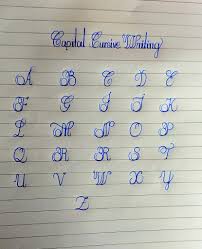 Capital Cursive Writing
A B C D E
F G I J K
L M N O P
Q R R S T
U V W X Y
Z